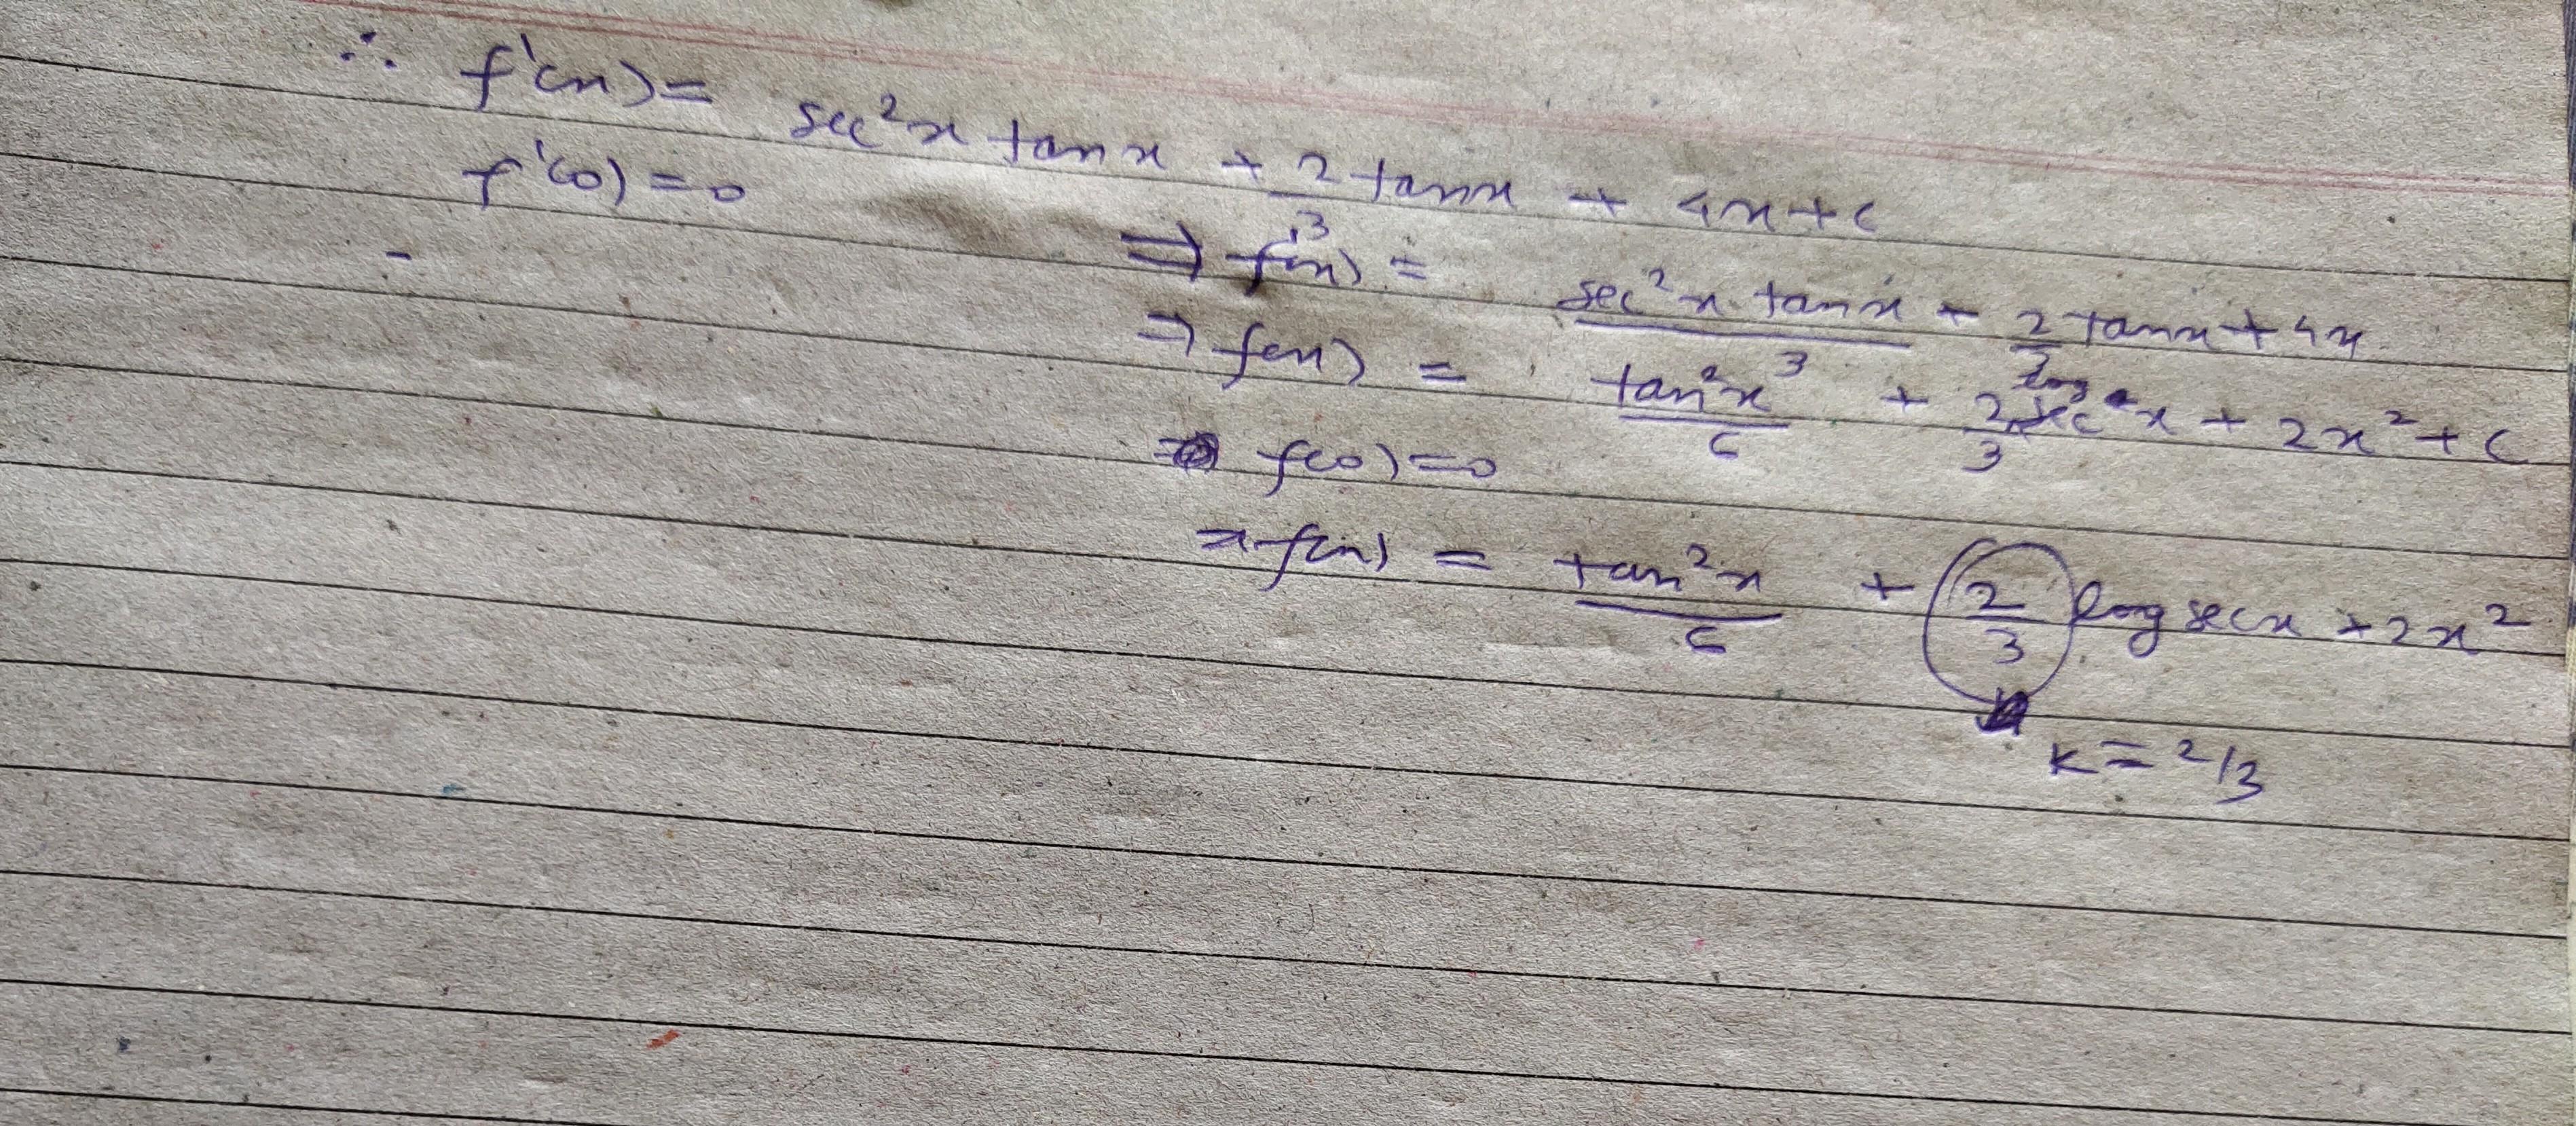 ∴ f'(x) = sec²x tanx + 2/3 tanx + 4x + c
f'(0) = 0
⇒ f'(x) = sec²x · tanx / 3 + 2/3 tanx + 4x
⇒ f(x) = tan²x / 6 + 2/3 log sec x + 2x² + c
f(0) = 0
⇒ f(x) = tan²x / 6 + 2/3 log secx + 2x²
k = 2/3